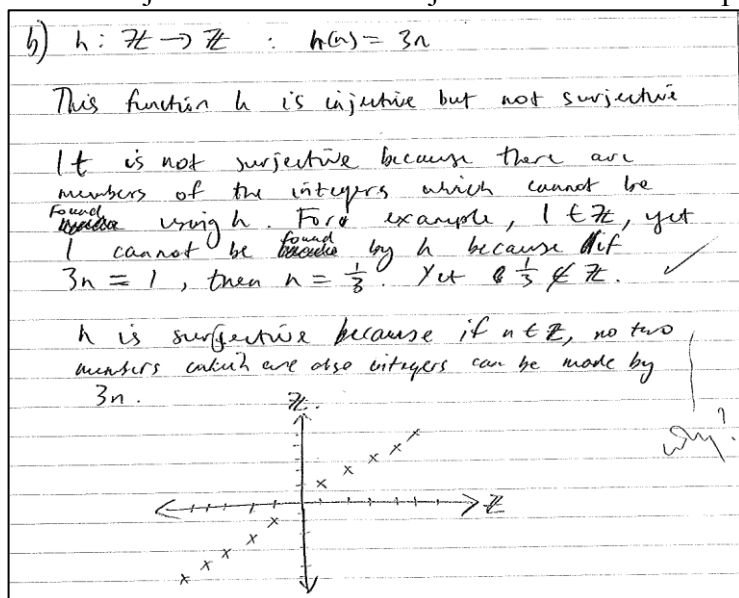 b) h: ℤ → ℤ : h(n) = 3n
This function h is injective but not surjective
It is not surjective because there are
members of the integers which cannot be
found using h. For example, 1 ∈ ℤ, yet
1 cannot be found by h because if
3n = 1, then n = 1/3. Yet 1/3 ∉ ℤ. ✓
h is surjective because if n ∈ ℤ, no two
numbers which are also integers can be made by
3n.
why?
ℤ
ℤ